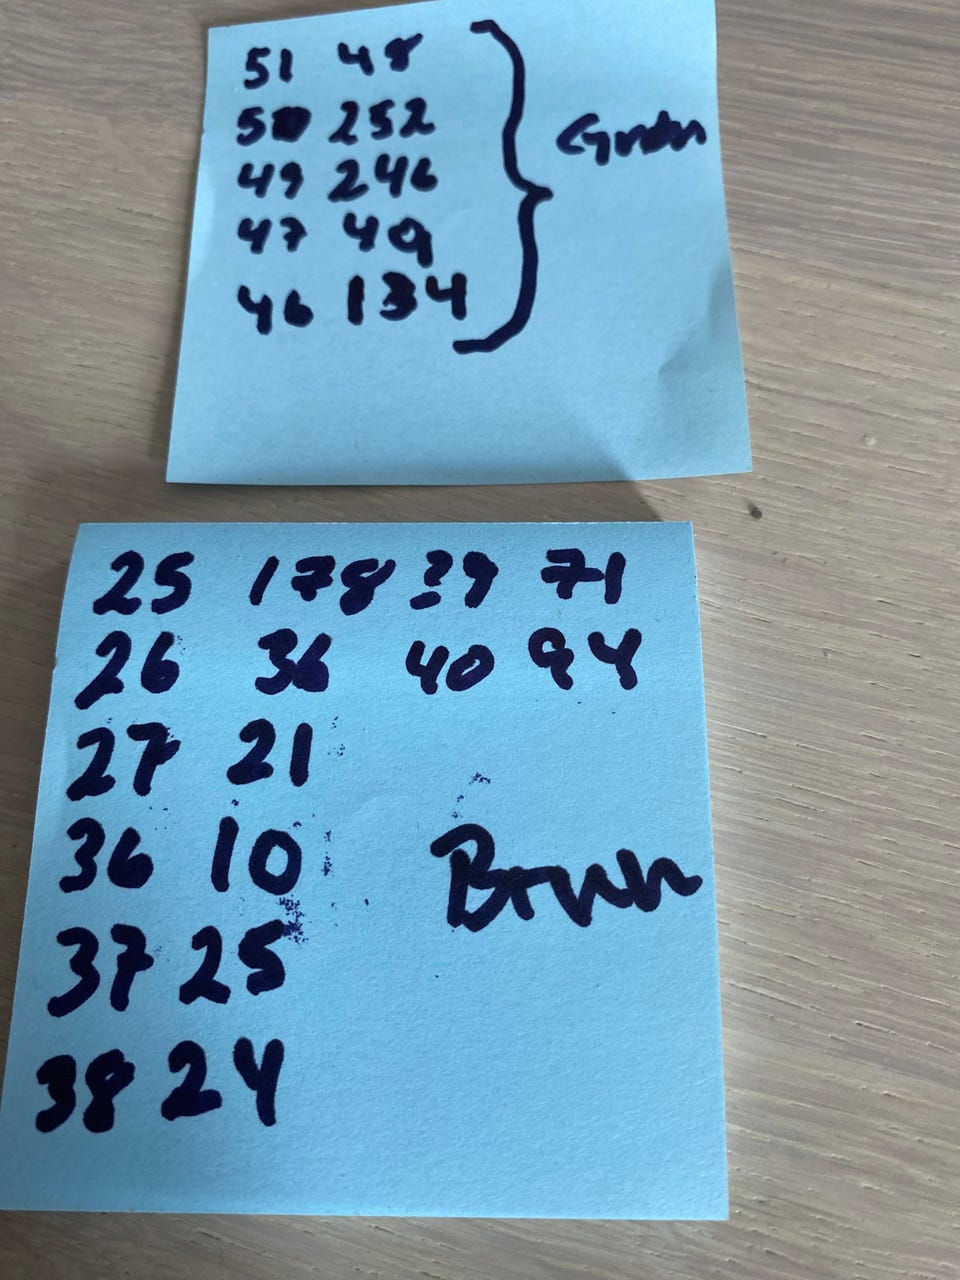 51 48
50 252
49 246
47 49
46 134
Grøn
25 178 39 71
26 36 40 94
27 21
36 10
37 25
38 24
Brun